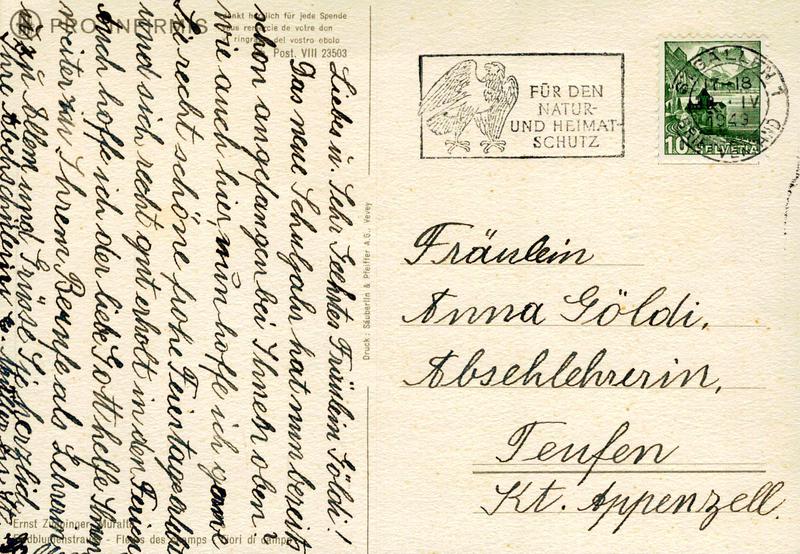 PRO INFIRMIS
dankt herzlich für jede Spende
vous remercie de votre don
ringrazia del vostro obolo
Post. VIII 23503
Liebes u. Sehr Geehrtes Fräulein Göldi!
Das neue Schuljahr hat nun bereits
schon angefangen bei Ihnen oben
wie auch hier, nun hoffe ich
Sie recht schöne frohe Feiertage
und sich recht gut erholt in den Ferien
Auch hoffe ich der liebe Gott helfe Ihnen
weiter in Ihrem Berufe als Lehrerin
Allem und Grüsse Sie herzlich
Ihre
Ernst Zuppinger, Muralto
Feldblumenstrauss - Fleurs des champs - Fiori di campo
Druck: Säuberlin & Pfeiffer A.G., Vevey
FÜR DEN
NATUR-
UND HEIMAT-
SCHUTZ
ST. GALLEN 1
-18
IV
1949
BRIEFVERSAND
10 HELVETIA
Fräulein
Anna Göldi,
Absehlehrerin,
Teufen
Kt. Appenzell.